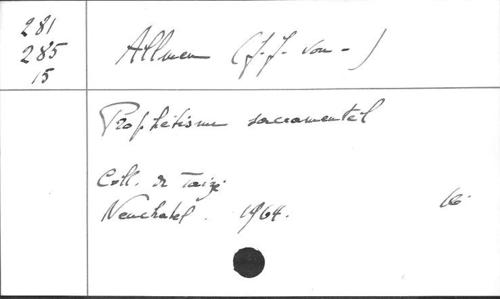 281
285
15
Allmen (J.-J. von -)
Prophétisme sacramentel
Coll. de Taizé
Neuchatel. 1964.